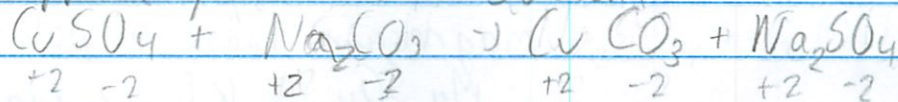 CuSO4 + Na2CO3 → CuCO3 + Na2SO4
+2 -2 +2 -2 +2 -2 +2 -2